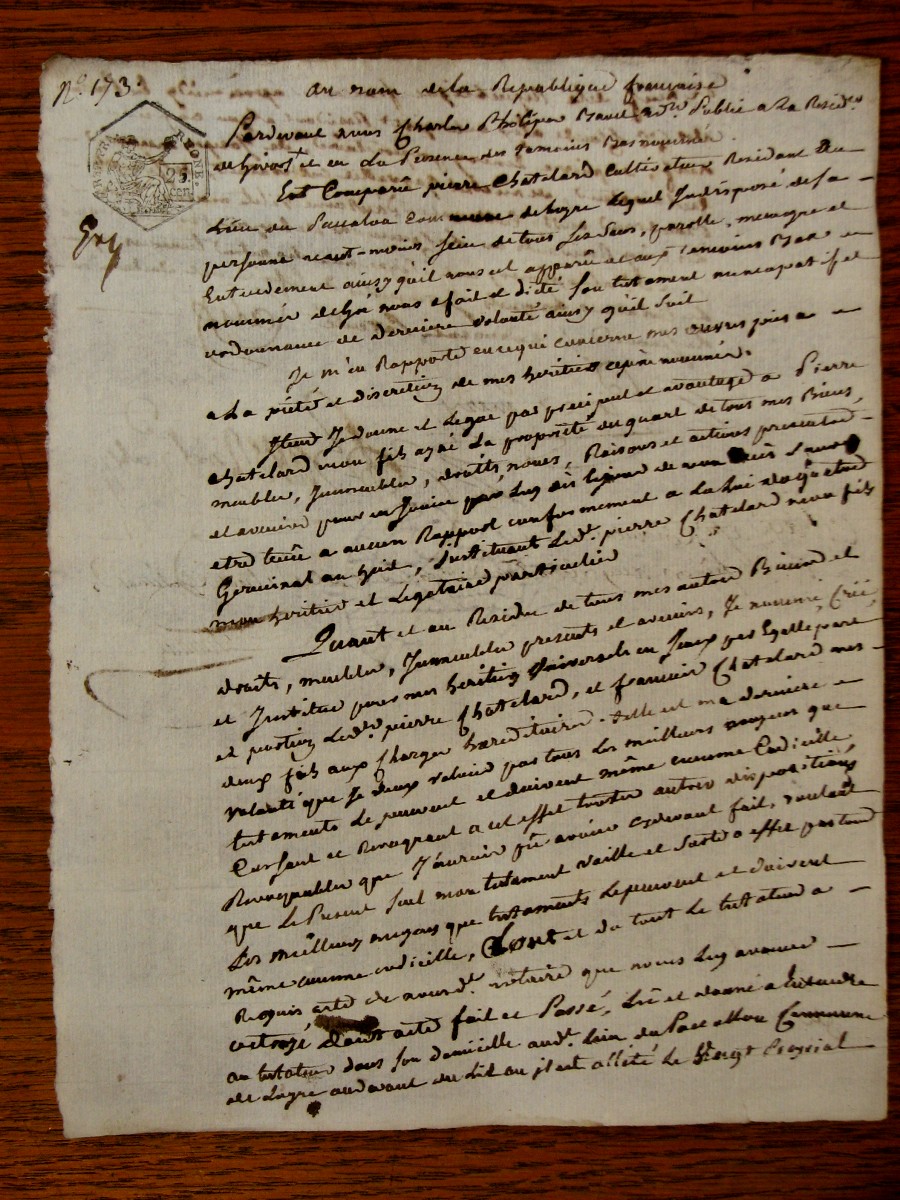 N.° 173.
au nom de la Republique française
Pardevant nous Charles Philipes Ravel n.re Public a La Resid.ce
de Givors et en La Presence des temoins Bas nommés
RHONE.
25 CEN.
Est Comparû pierre Chatelard Cultivateur Residant Au
Lieu du Commune de Loyre Lequel Indisposé de sa
personne neant-moins sein de tous Les sens, parolle, memoyre et
Entendement ainsy qu'il nous est apparû et aux temoins Bas
nommés de gré nous a fait et dicté son testament nuncupatif et
ordonnance de derniere volonté ainsy qu'il suit
Je m'en Rapporte en ce qui concerne mes œuvres pies a
a La piété et discretion de mes heritiers cy après nommés.
Item Je donne et Legue par preciput et avantage a Pierre
Chatelard mon fils ayné La propriété du quart de tous mes Biens,
meubles, Immeubles, droits, noms, Raisons et actions presents
et avenirs pour en Jouir par Luy dès Lejour de mon decès sans
etre tenû a aucun Rapport conformement a La Loi du quatre
Germinal an huit, Instituant Led.t pierre Chatelard mon fils
mon heritier et Legataire particulier
Quant et au Residu de tous mes autres Biens et
droits, meubles, Immeubles presents et avenirs, Je nomme, Créé
et Institue pour mes heritiers Universels en Jceux par Egalle part
et portion Led.t pierre Chatelard, et françois Chatelard mes
deux fils aux Charges hereditaires. telle est ma derniere
volonté que Je veux valoir par tous Les meilleurs moyens que
testaments Le peuvent et doivent même comme Codicille
Cassant et Revoquant a cet effet toutes autres dispositions
Revoquables que J'aurois pû avoir cydevant fait, voulant
que Le Present seul mon testament vaille et sorte a effet par tous
Les meilleurs moyens que testaments Lepeuvent et doivent
même comme codicille, Dont et du tout Le testateur a
Requis acte de nousd.t notaire que nous Luy avons
octroyé dont acte fait et Passé, Lû et donné a Entendre
au testateur dans son domicille aud.t Lieu du Commune
de Loyre audevant du Lit ou il est allité Le Vingt Prairial